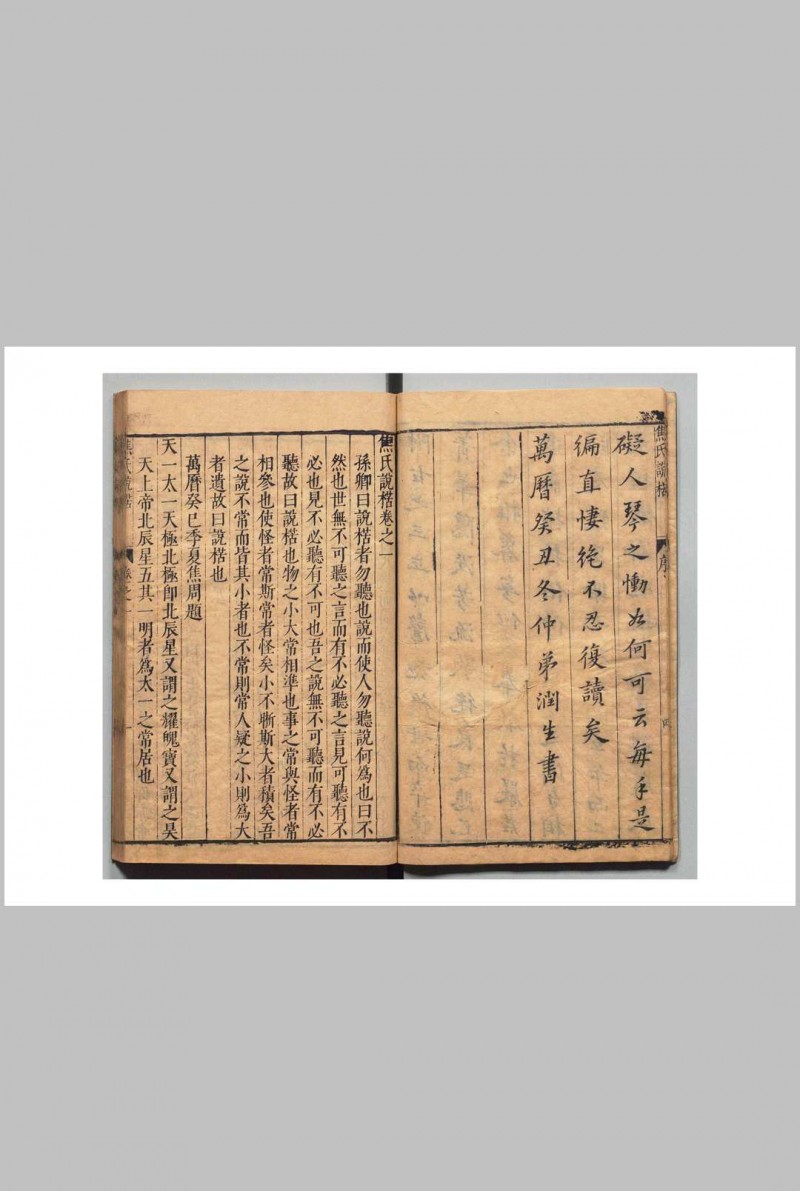 焦氏說楛
序
礙人琴之慟如何可云每手是
編直悽絶不忍復讀矣
萬曆癸丑冬仲弟潤生書
焦氏說楛卷之一
孫卿曰說楛者勿聽也說而使人勿聽說何爲也曰不
然也世無不可聽之言而有不必聽之言見可聽有不
必也見不必聽有不可也吾之說無不可聽而有不必
聽故曰說楛也物之小大常相準也事之常與怪者常
相參也使怪者常斯常者怪矣小不斷斯大者積矣吾
之說不常而皆其小者也不常則常人疑之小則爲大
者遺故曰說楛也
萬曆癸巳季夏焦周題
天一太一天極北極卽北辰星又謂之耀魄寶又謂之昊
天上帝北辰星五其一明者爲太一之常居也
焦氏說楛
卷之一
一